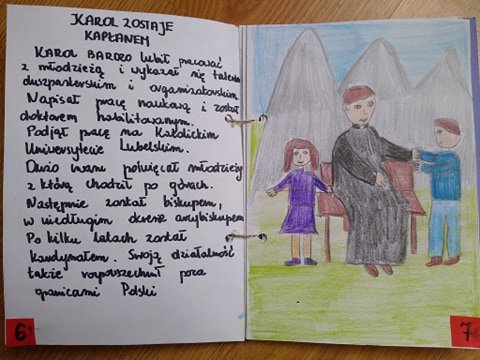 KAROL ZOSTAJE
KAPŁANEM
KAROL BARDZO lubił pracować
z młodzieżą i wykazał się talentem
duszpasterskim i organizatorskim
Napisał pracę naukową i został
doktorem habilitowanym.
Podjął pracę na Katolickim
Uniwersytecie Lubelskim.
Dużo czasu poświęcał młodzieży
z którą chodził po górach.
Następnie został biskupem,
w niedługim okresie arcybiskupem
Po kilku latach został
kardynałem. Swoją działalność
także rozpowszechnił poza
granicami Polski
6
7